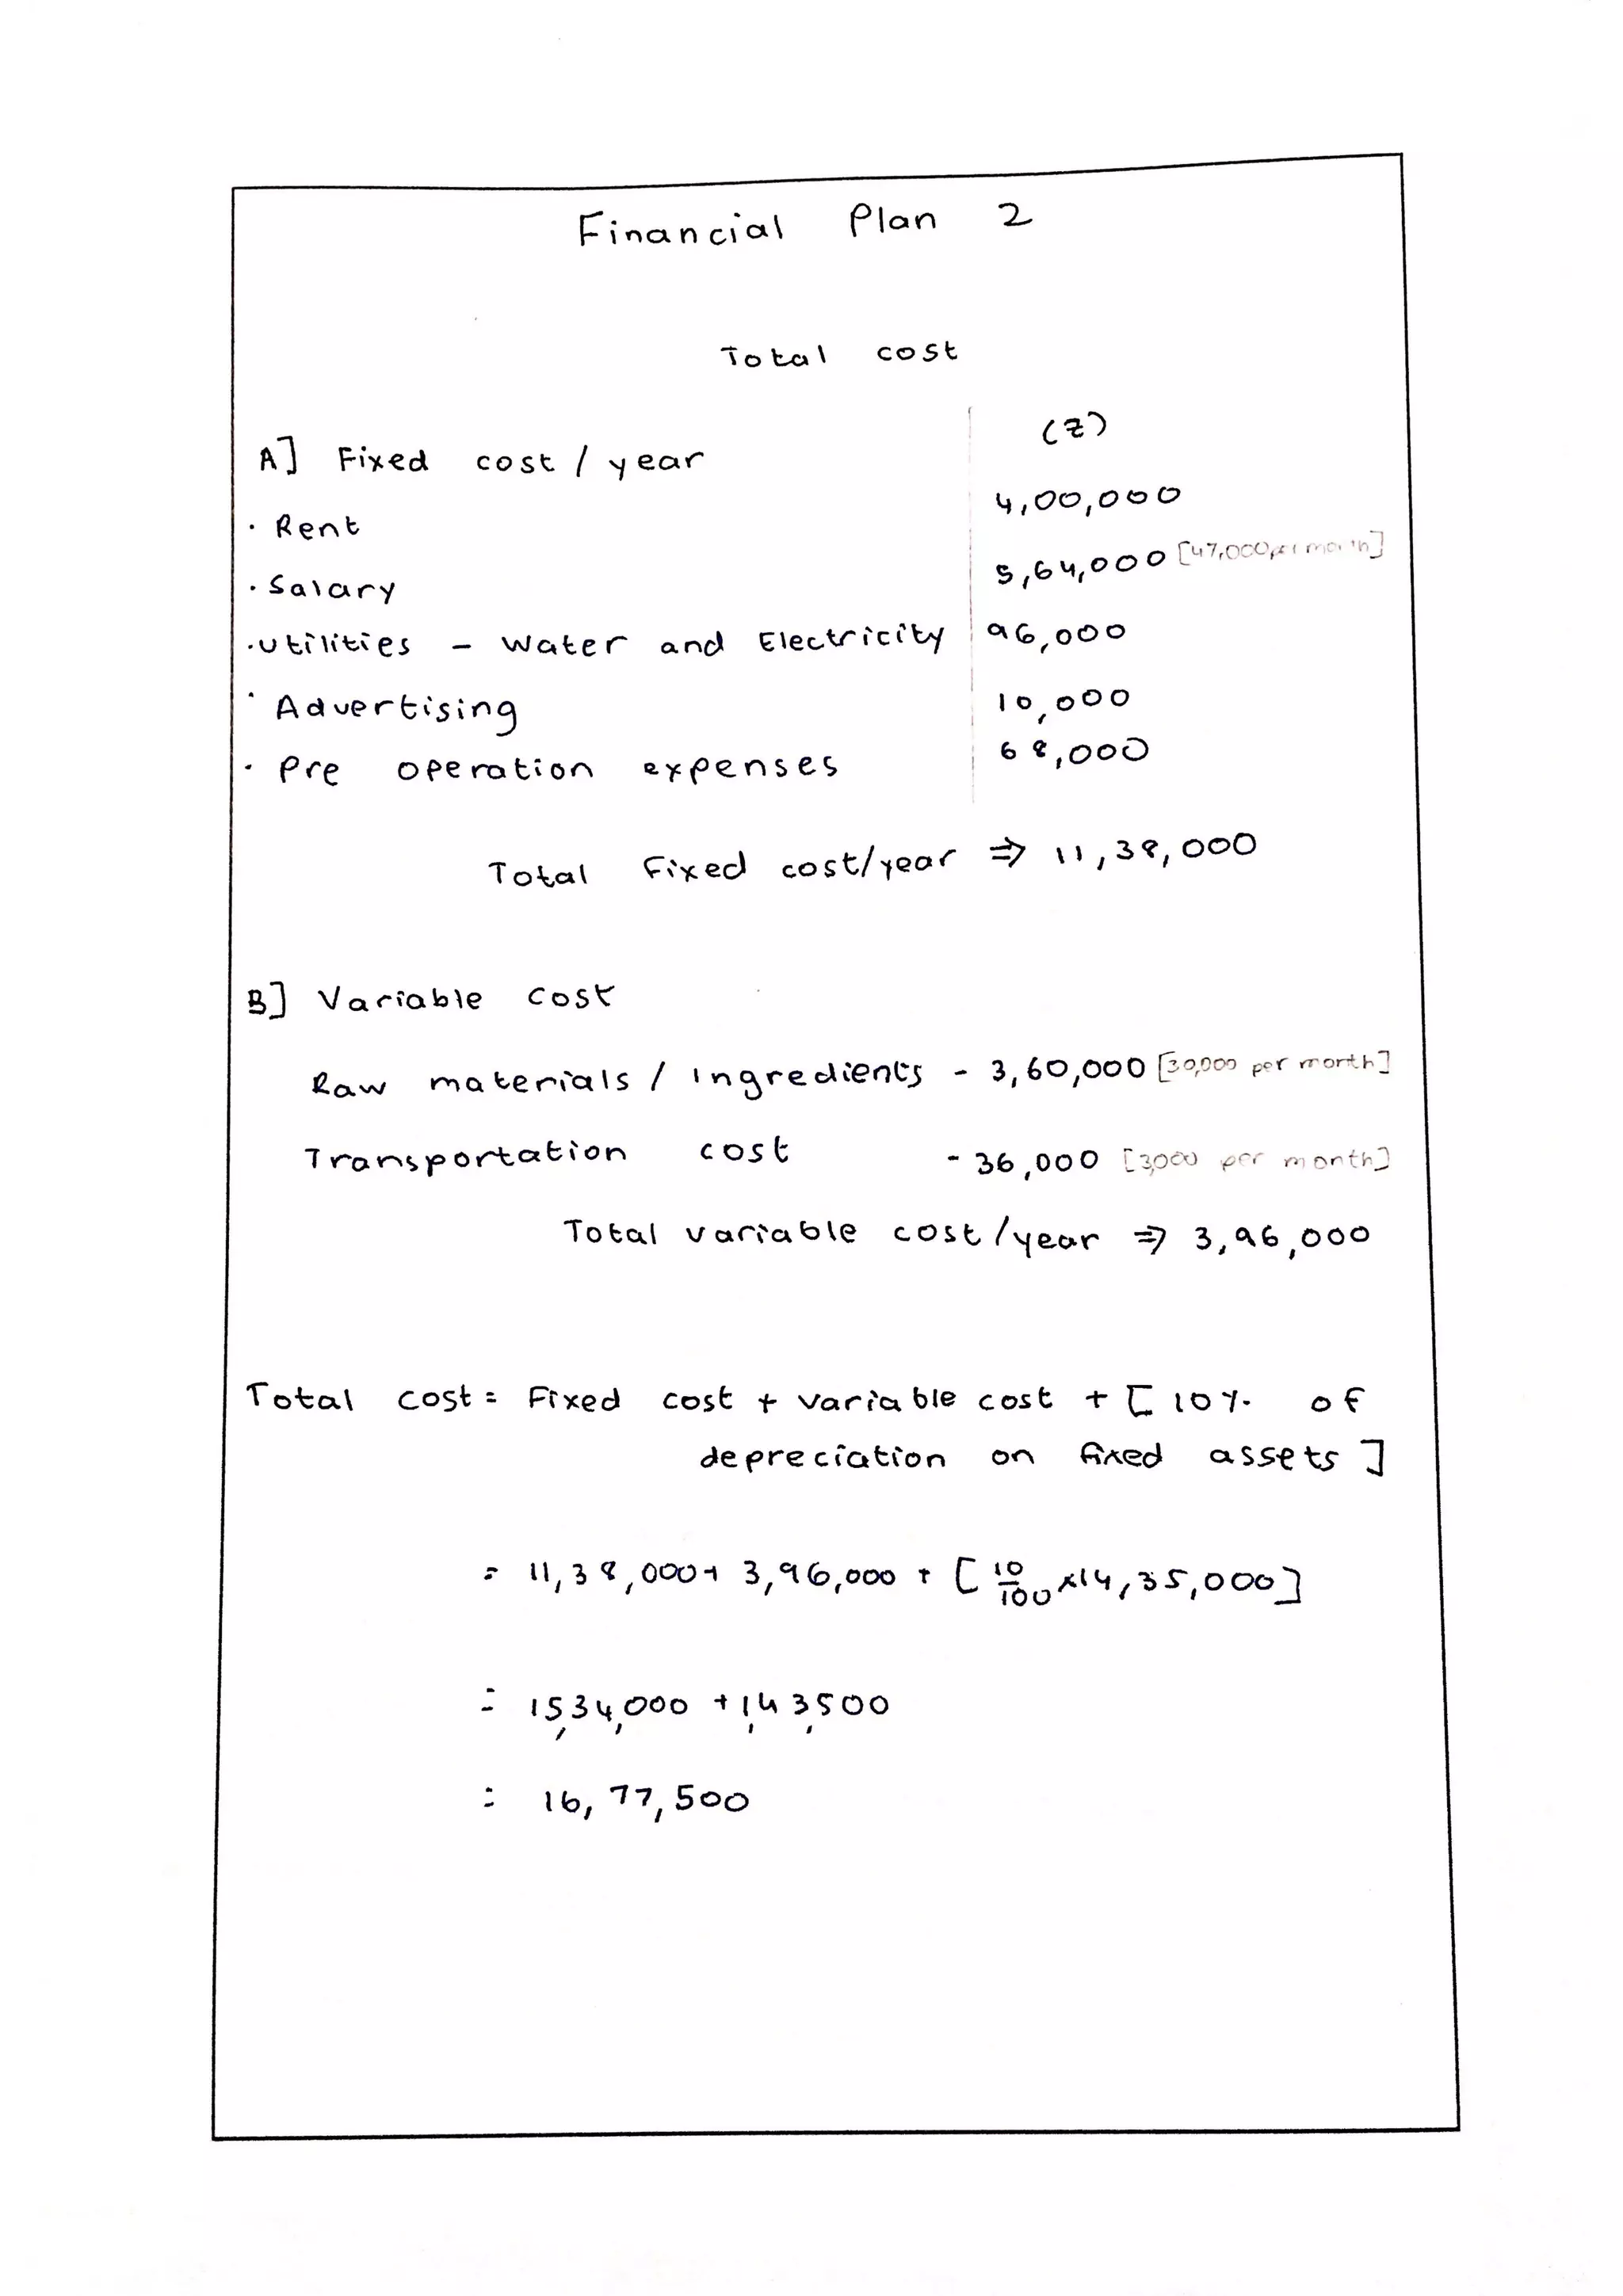 Financial Plan 2
Total cost
(₹)
A] Fixed cost / year
· Rent 4,00,000
· Salary 5,64,000 [47,000 per month]
· utilities - Water and Electricity 96,000
· Advertising 10,000
· Pre operation expenses 68,000
Total Fixed cost/year ⇒ 11,38,000
B] Variable cost
Raw materials / Ingredients - 3,60,000 [30,000 per month]
Transportation cost - 36,000 [3,000 per month]
Total variable cost/year ⇒ 3,96,000
Total cost = Fixed cost + variable cost + [10% of
depreciation on fixed assets]
= 11,38,000 + 3,96,000 + [10/100 × 14,35,000]
= 15,34,000 + 1,43,500
= 16,77,500